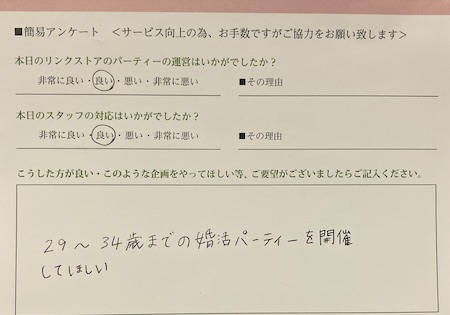 ■簡易アンケート ＜サービス向上の為、お手数ですがご協力をお願い致します＞
本日のリンクストアのパーティーの運営はいかがでしたか？
非常に良い・良い・悪い・非常に悪い ■その理由
本日のスタッフの対応はいかがでしたか？
非常に良い・良い・悪い・非常に悪い ■その理由
こうした方が良い・このような企画をやってほしい等、ご要望がございましたらご記入ください。
29〜34歳までの婚活パーティーを開催
してほしい